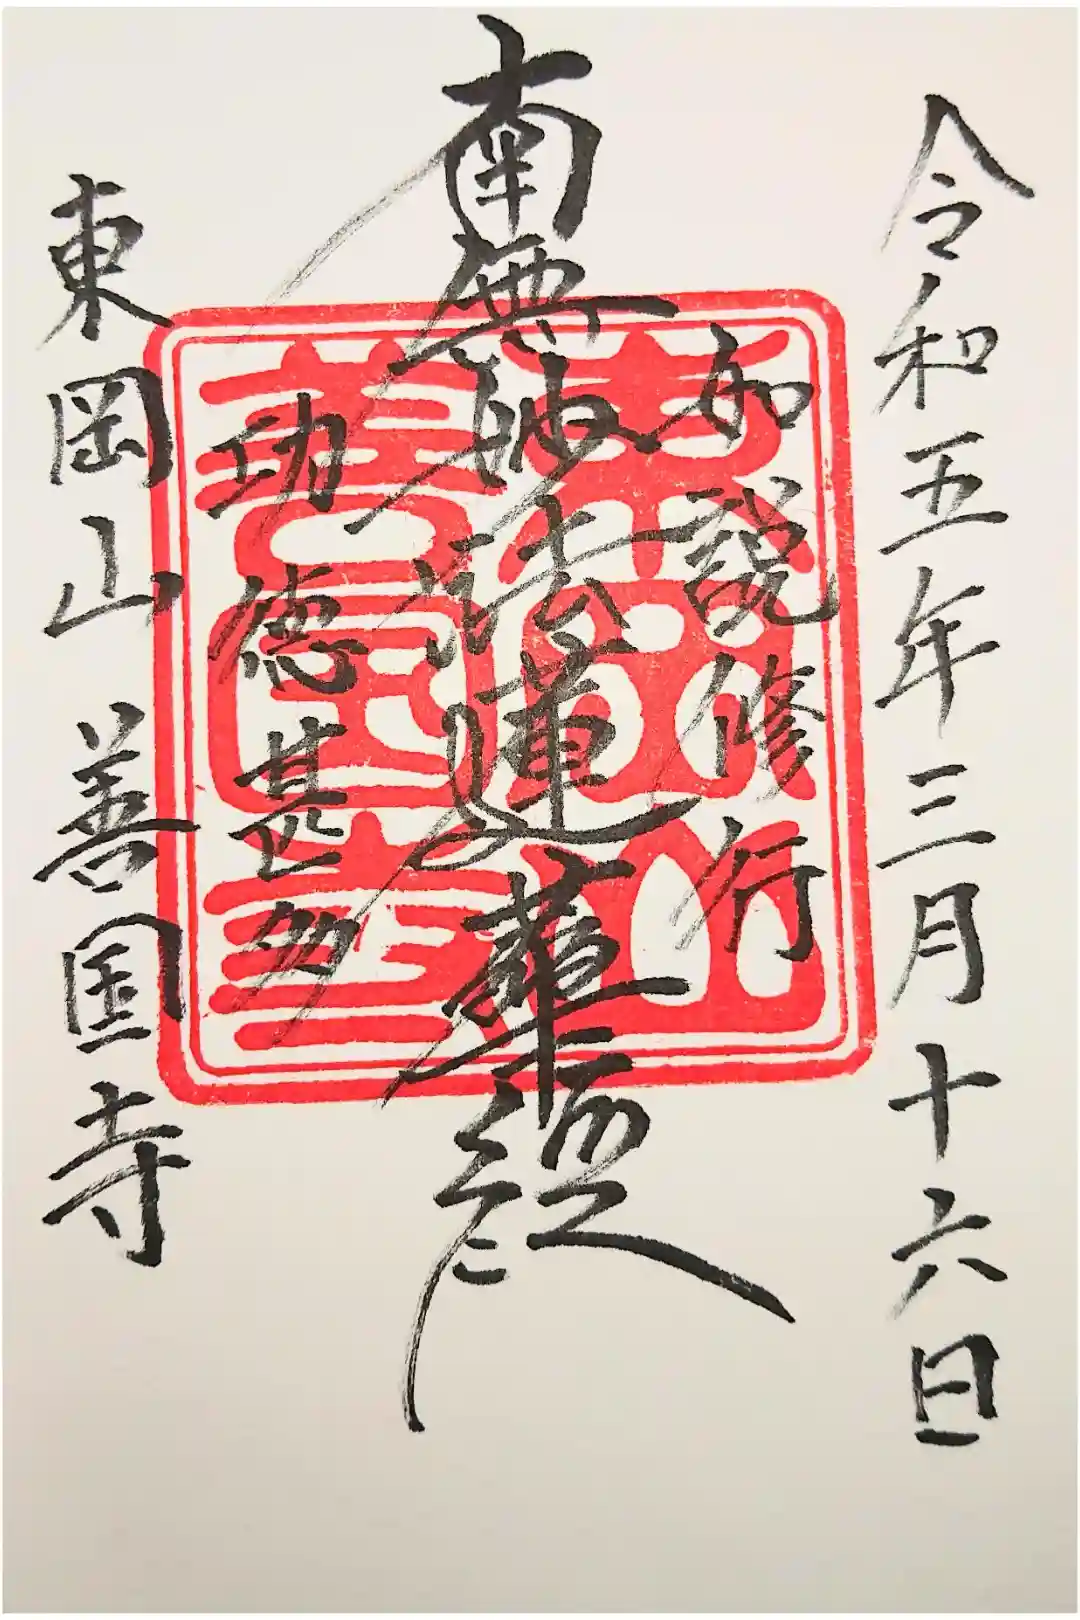 令和五年三月十六日
如説修行
南無妙法蓮華経
功徳甚多
東岡山 善国寺